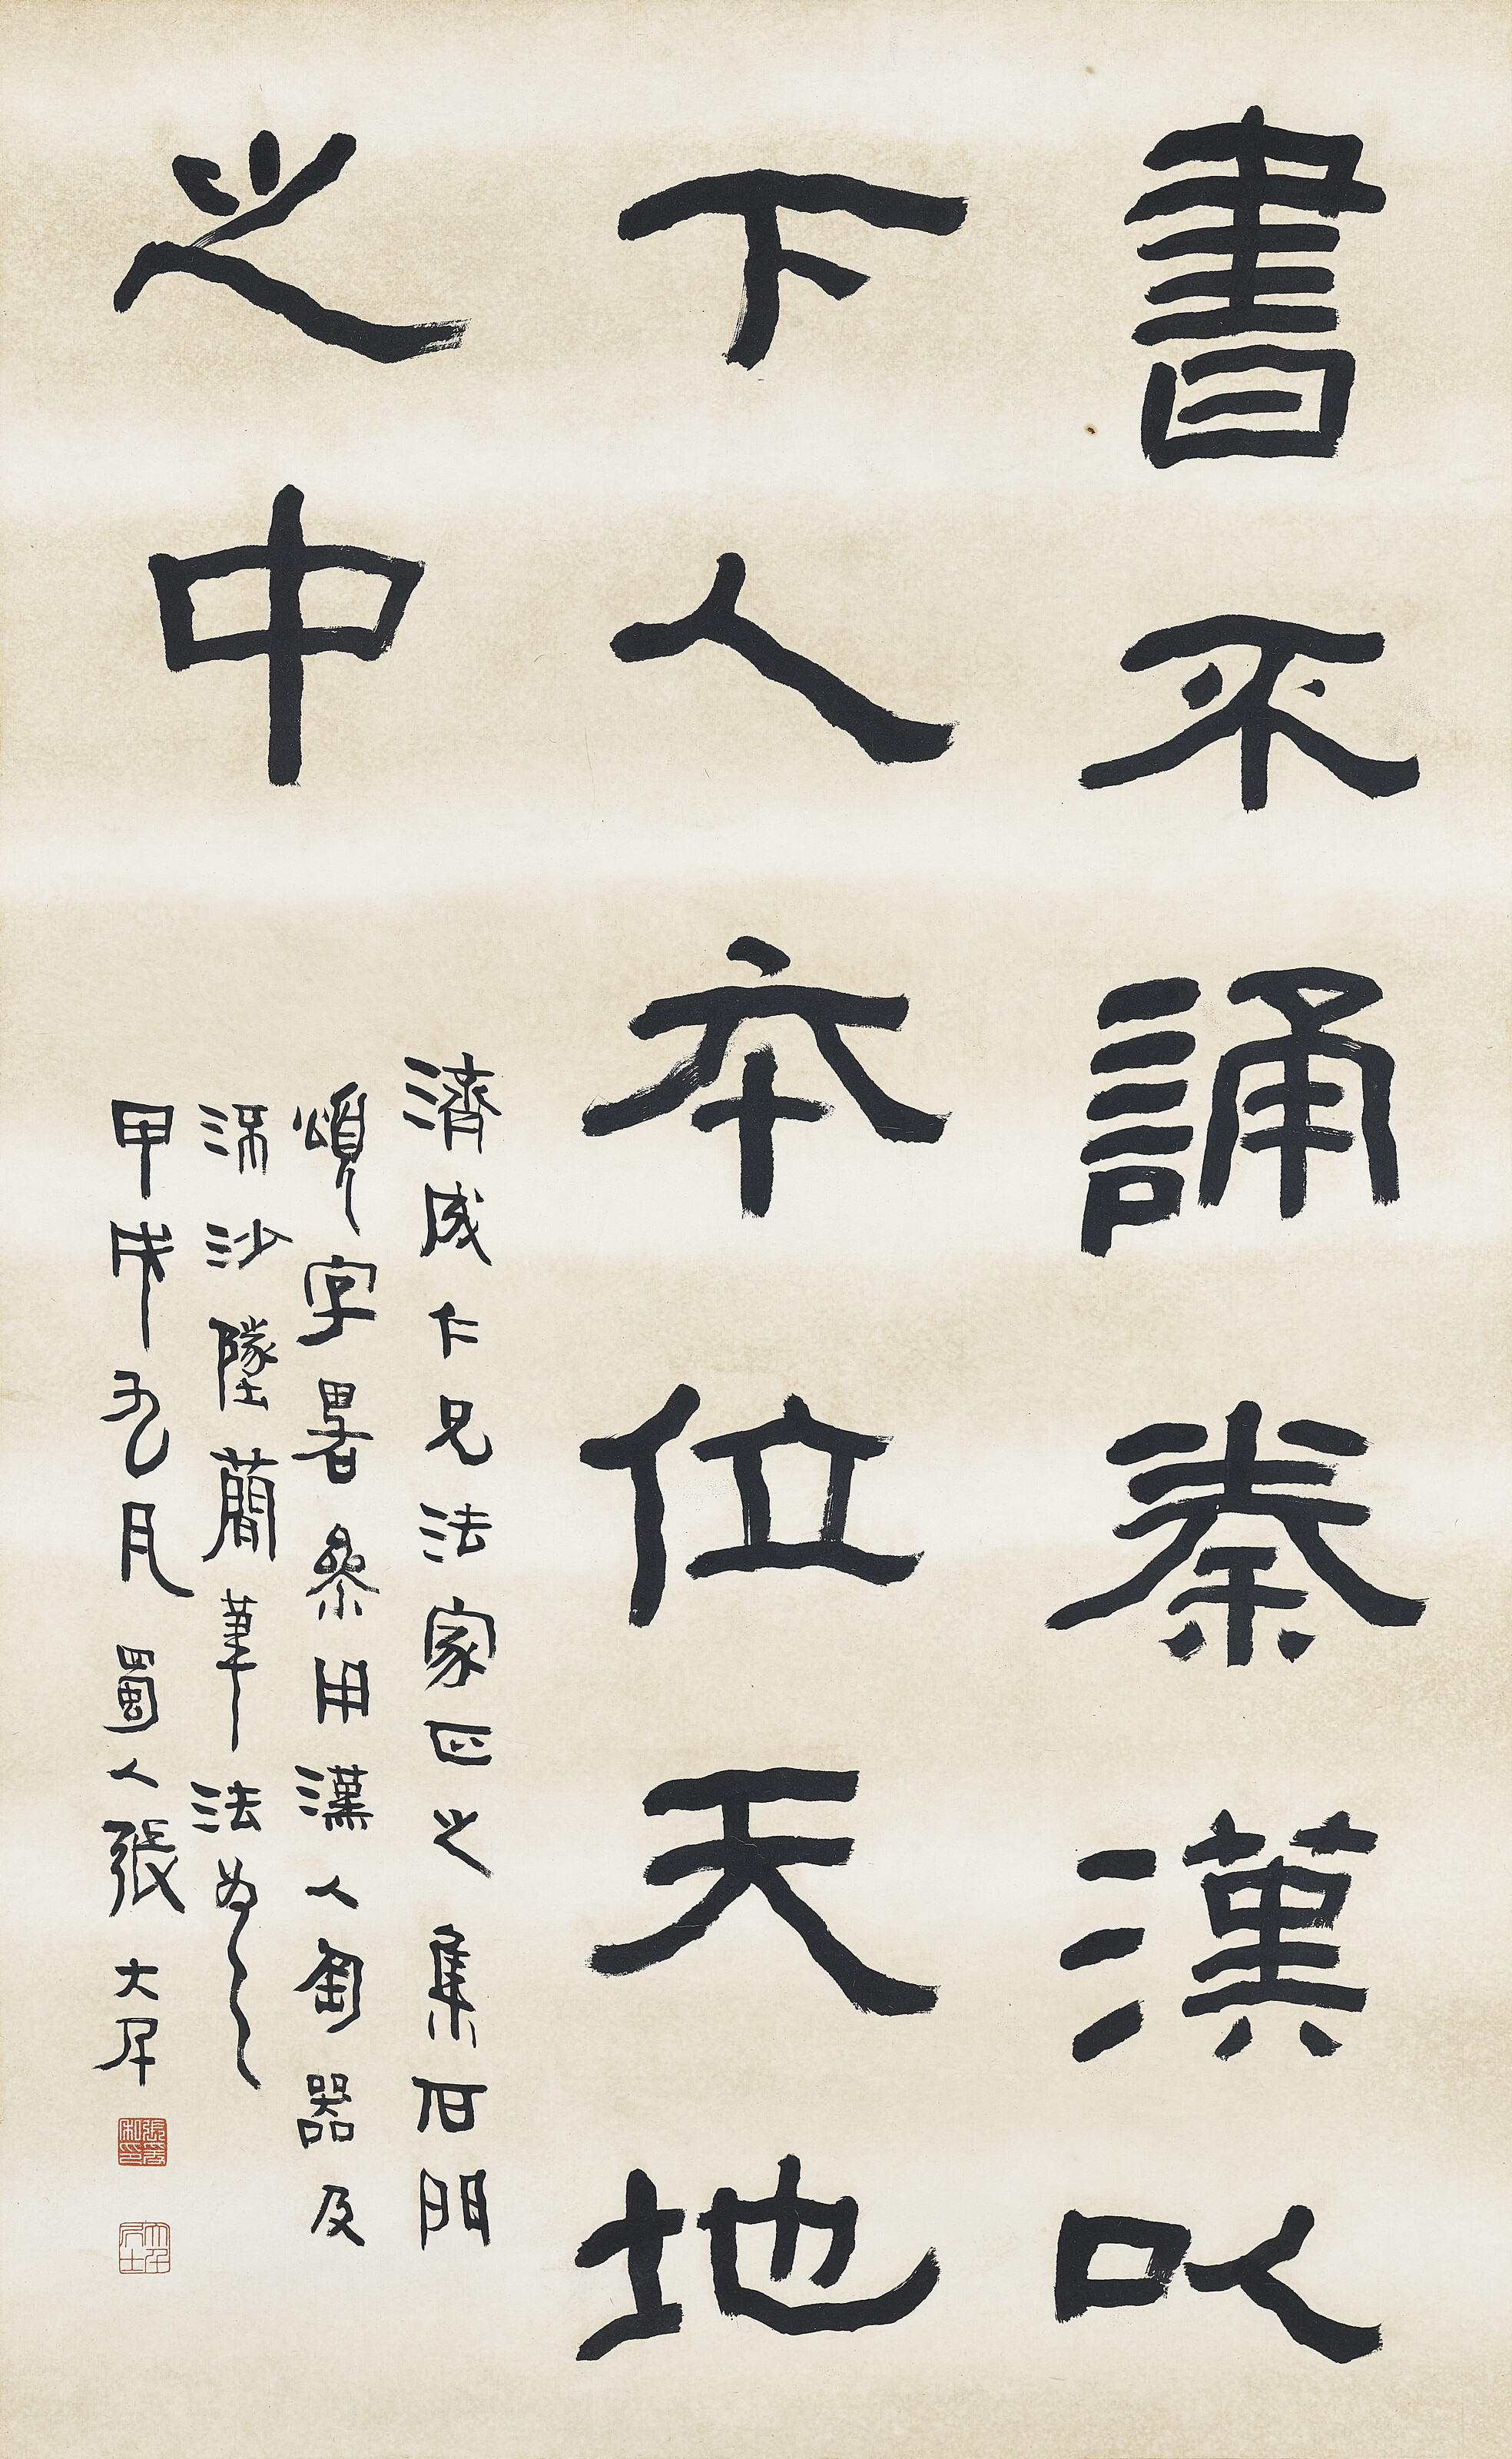 書不誦秦漢以
下人本位天地
之中
濟成仁兄法家正之集石門
頌字署參用漢人匋器及
流沙墜蕳筆法為之
甲戌九月蜀人張大千
張爰私印
大千居士